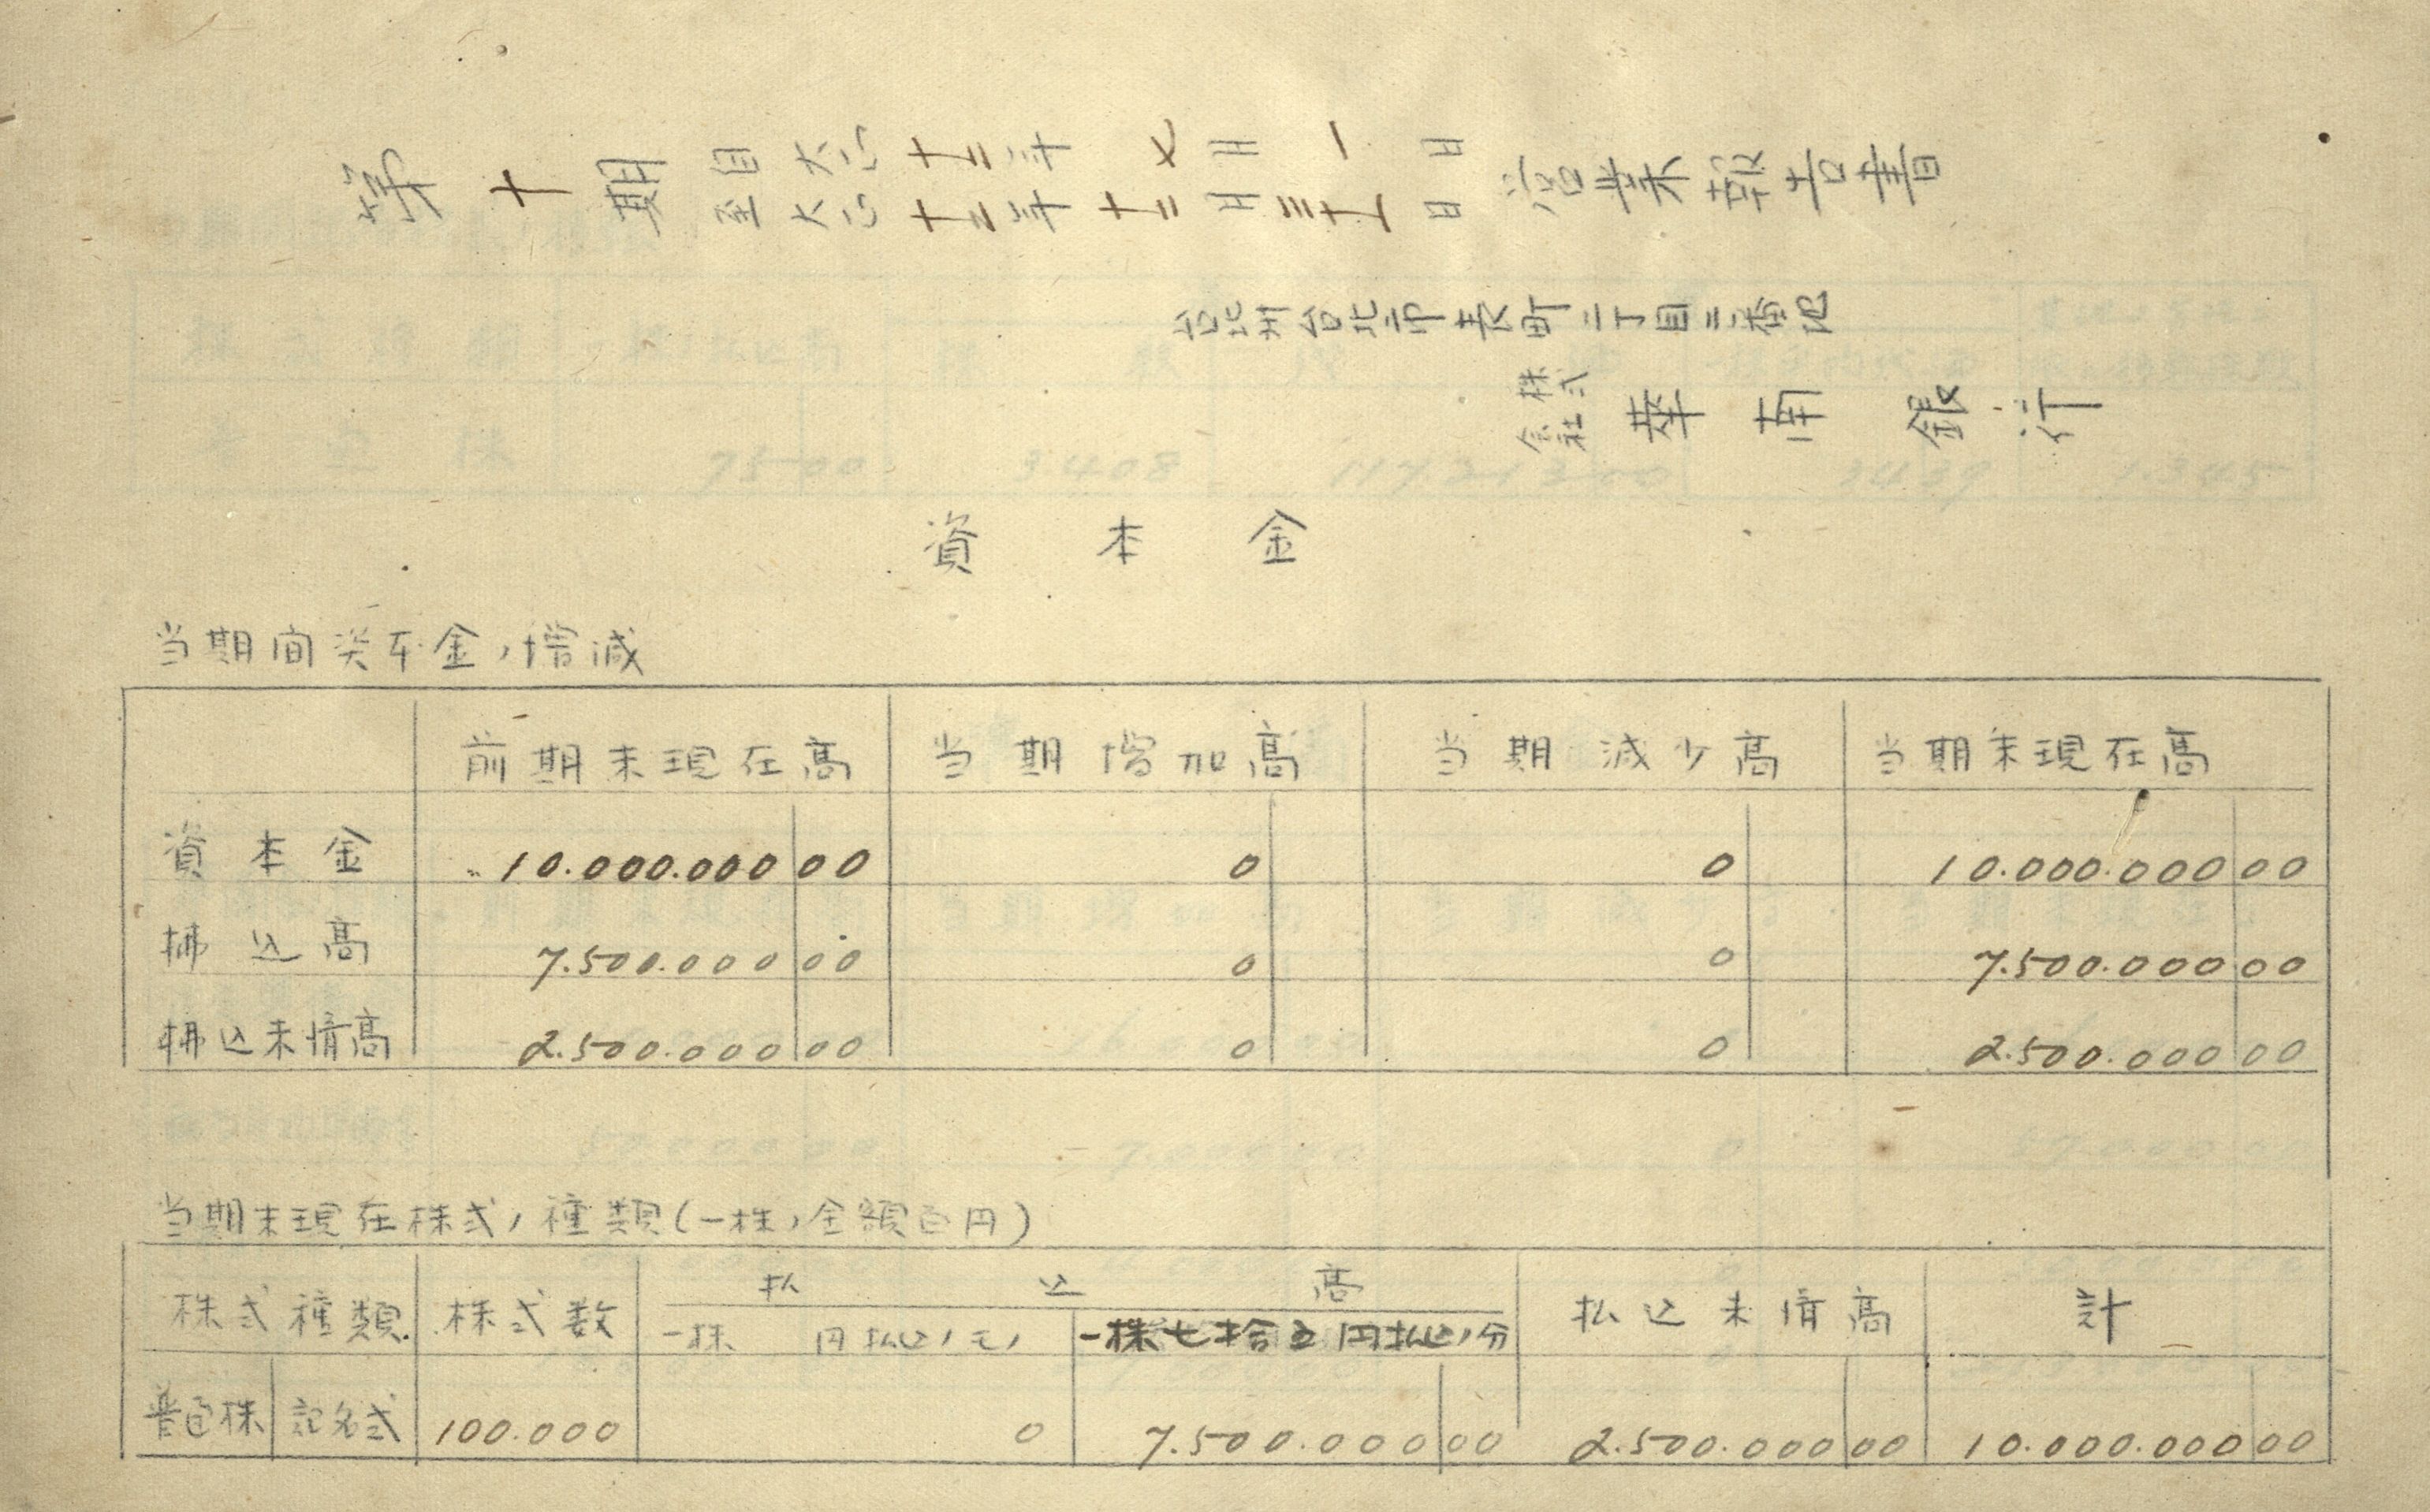 第十期 自大正十三年七月一日 至大正十三年十二月三十一日 営業報告書
台北州台北市表町二丁目二番地
株式会社 華南銀行
資本金
当期間資本金ノ増減
前期末現在高 当期増加高 当期減少高 当期末現在高
資本金 10.000.000 00 0 0 10.000.000 00
払込高 7.500.000 00 0 0 7.500.000 00
払込未済高 2.500.000 00 0 0 2.500.000 00
当期末現在株式ノ種類(一株ノ金額百円)
株式種類 株式数 払込高 払込未済高 計
一株 円払込ノモノ 一株七拾五円払込ノ分
普通株 記名式 100.000 0 7.500.000 00 2.500.000 00 10.000.000 00